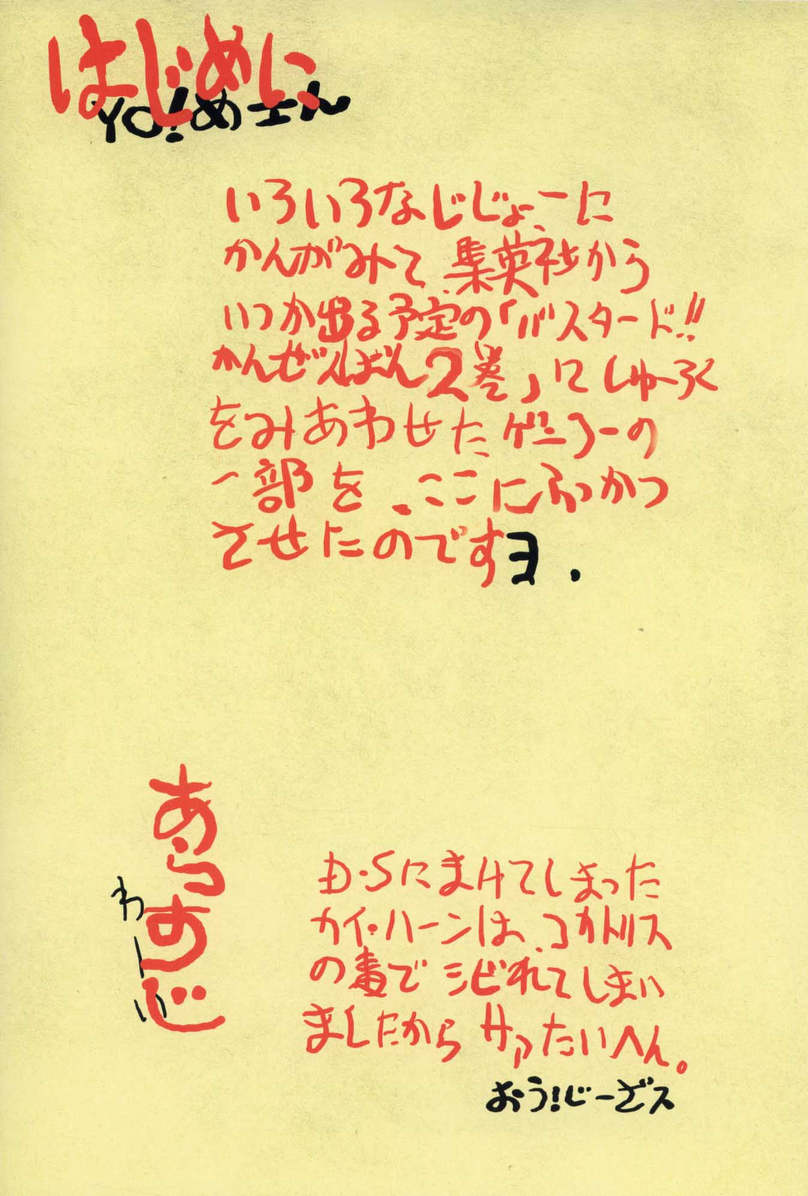 はじめに、
YO!めさん
いろいろなじじょーに
かんがみて、集英社から
いつか出る予定の「バスタード!!
かんぜんばん2巻」にしゅーろく
をみあわせたゲンコーの
一部を、ここにふっかつ
させたのですヨ.
あらすじ
わーい
D・Sにまけてしまった
カイ・ハーンは、コカトリス
の毒でシビれてしまい
ましたからサアたいへん。
おう!じーざス